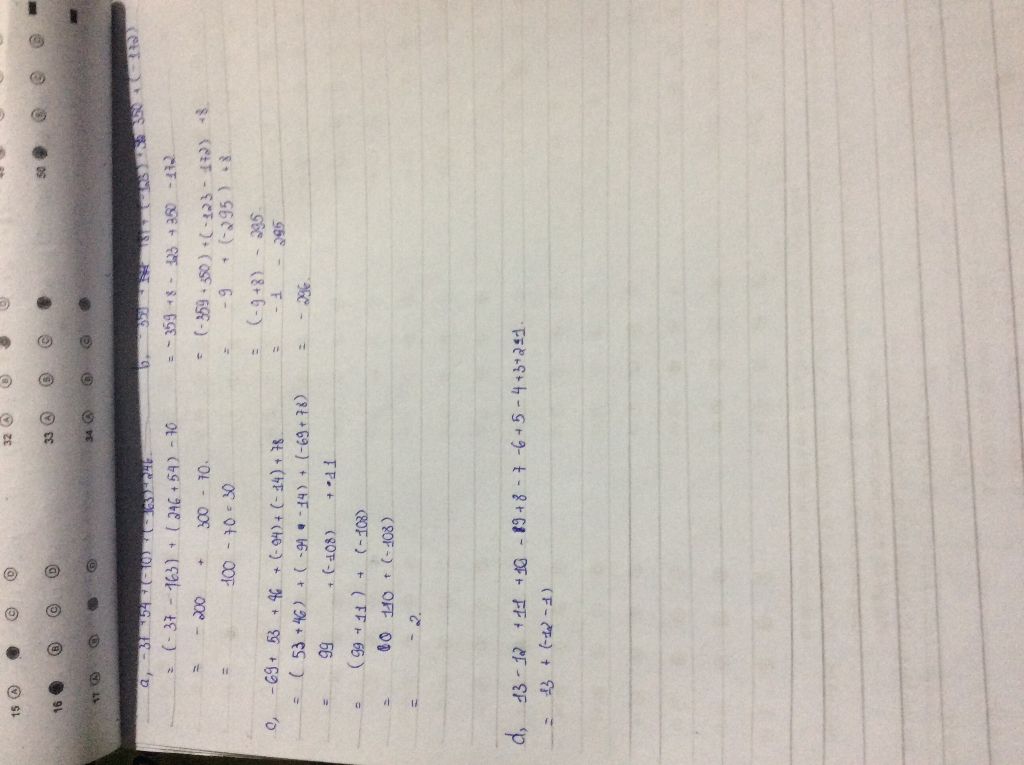 15 Ⓐ Ⓒ Ⓓ
32 Ⓐ Ⓑ Ⓓ
16 Ⓑ Ⓒ Ⓓ
33 Ⓐ Ⓑ Ⓒ
50 Ⓑ Ⓒ Ⓓ
17 Ⓐ Ⓑ Ⓓ
34 Ⓐ Ⓑ Ⓒ
a, -37 + 54 + (-70) + (-163) + 246.
= (-37 - 163) + (246 + 54) - 70
= - 200 + 300 - 70.
= 100 - 70 = 30
b, -359 + 181 + (-123) + 350 + (-172)
= -359 + 8 - 123 + 350 - 172
= (-359 + 350) + (-123 - 172) + 8
= -9 + (-295) + 8
= (-9 + 8) - 295.
= -1 - 295
= - 296.
c, -69 + 53 + 46 + (-94) + (-14) + 78
= (53 + 46) + (-94 - 14) + (-69 + 78)
= 99 + (-108) + 11
= (99 + 11) + (-108)
= 110 + (-108)
= - 2.
d, 13 - 12 + 11 + 10 - 9 + 8 - 7 - 6 + 5 - 4 + 3 + 2 - 1.
= 13 + (-12 - 1)